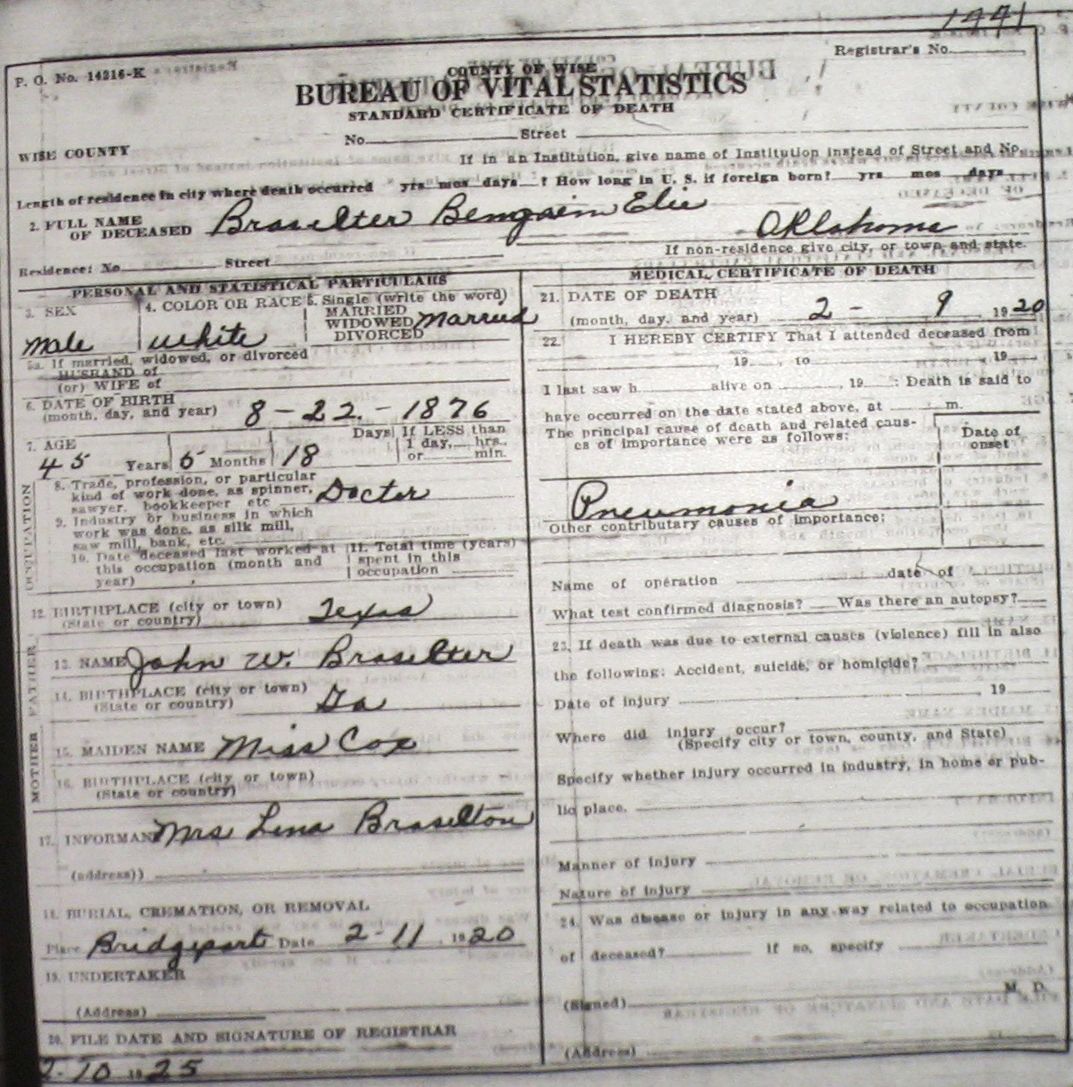 1441
P. O. No. 14216-K
Registrar's No.
COUNTY OF WISE
BUREAU OF VITAL STATISTICS
STANDARD CERTIFICATE OF DEATH
No. Street
WISE COUNTY
If in an Institution, give name of Institution instead of Street and No.
Length of residence in city where death occurred yrs mos days ? How long in U. S. if foreign born? yrs mos days
2. FULL NAME OF DECEASED Braselter Bengain Elie Oklahoma
If non-residence give city, or town and state.
Residence: No Street
PERSONAL AND STATISTICAL PARTICULARS
3. SEX Male
4. COLOR OR RACE White
5. Single (write the word)
MARRIED
WIDOWED Married
DIVORCED
5a. If married, widowed, or divorced
HUSBAND of
(or) WIFE of
6. DATE OF BIRTH
(month, day, and year) 8-22-1876
7. AGE
45 Years 5 Months 18 Days
If LESS than
1 day, hrs.
or min.
OCCUPATION
8. Trade, profession, or particular
kind of work done, as spinner, Docter
sawyer, bookkeeper etc
9. Industry or business in which
work was done, as silk mill,
saw mill, bank, etc.
10. Date deceased last worked at
this occupation (month and
year)
11. Total time (years)
spent in this
occupation
12. BIRTHPLACE (city or town) Texas
(State or country)
FATHER
13. NAME John W. Braselter
14. BIRTHPLACE (city or town)
(State or country) Ga
MOTHER
15. MAIDEN NAME Miss Cox
16. BIRTHPLACE (city or town)
(State or country)
17. INFORMAN Mrs Lena Braselton
(address))
18. BURIAL, CREMATION, OR REMOVAL
Place Bridgeport Date 2-11 1920
19. UNDERTAKER
(Address)
20. FILE DATE AND SIGNATURE OF REGISTRAR
2-10 1925
MEDICAL CERTIFICATE OF DEATH
21. DATE OF DEATH
(month, day, and year) 2 - 9 1920
22. I HEREBY CERTIFY That I attended deceased from
19 to 19
I last saw h alive on , 19 : Death is said to
have occurred on the date stated above, at m.
The principal cause of death and related cau-
ses of importance were as follows:
Date of
onset
Pneumonia
Other contributary causes of importance:
Name of operation date of
What test confirmed diagnosis? Was there an autopsy?
23. If death was due to external causes (violence) fill in also
the following: Accident, suicide, or homicide?
Date of injury 19
Where did injury occur?
(Specify city or town, county, and State)
Specify whether injury occurred in industry, in home or pub-
lic place.
Manner of injury
Nature of injury
24. Was disease or injury in any way related to occupation
of deceased? If so, specify
(Signed) M. D.
(Address)